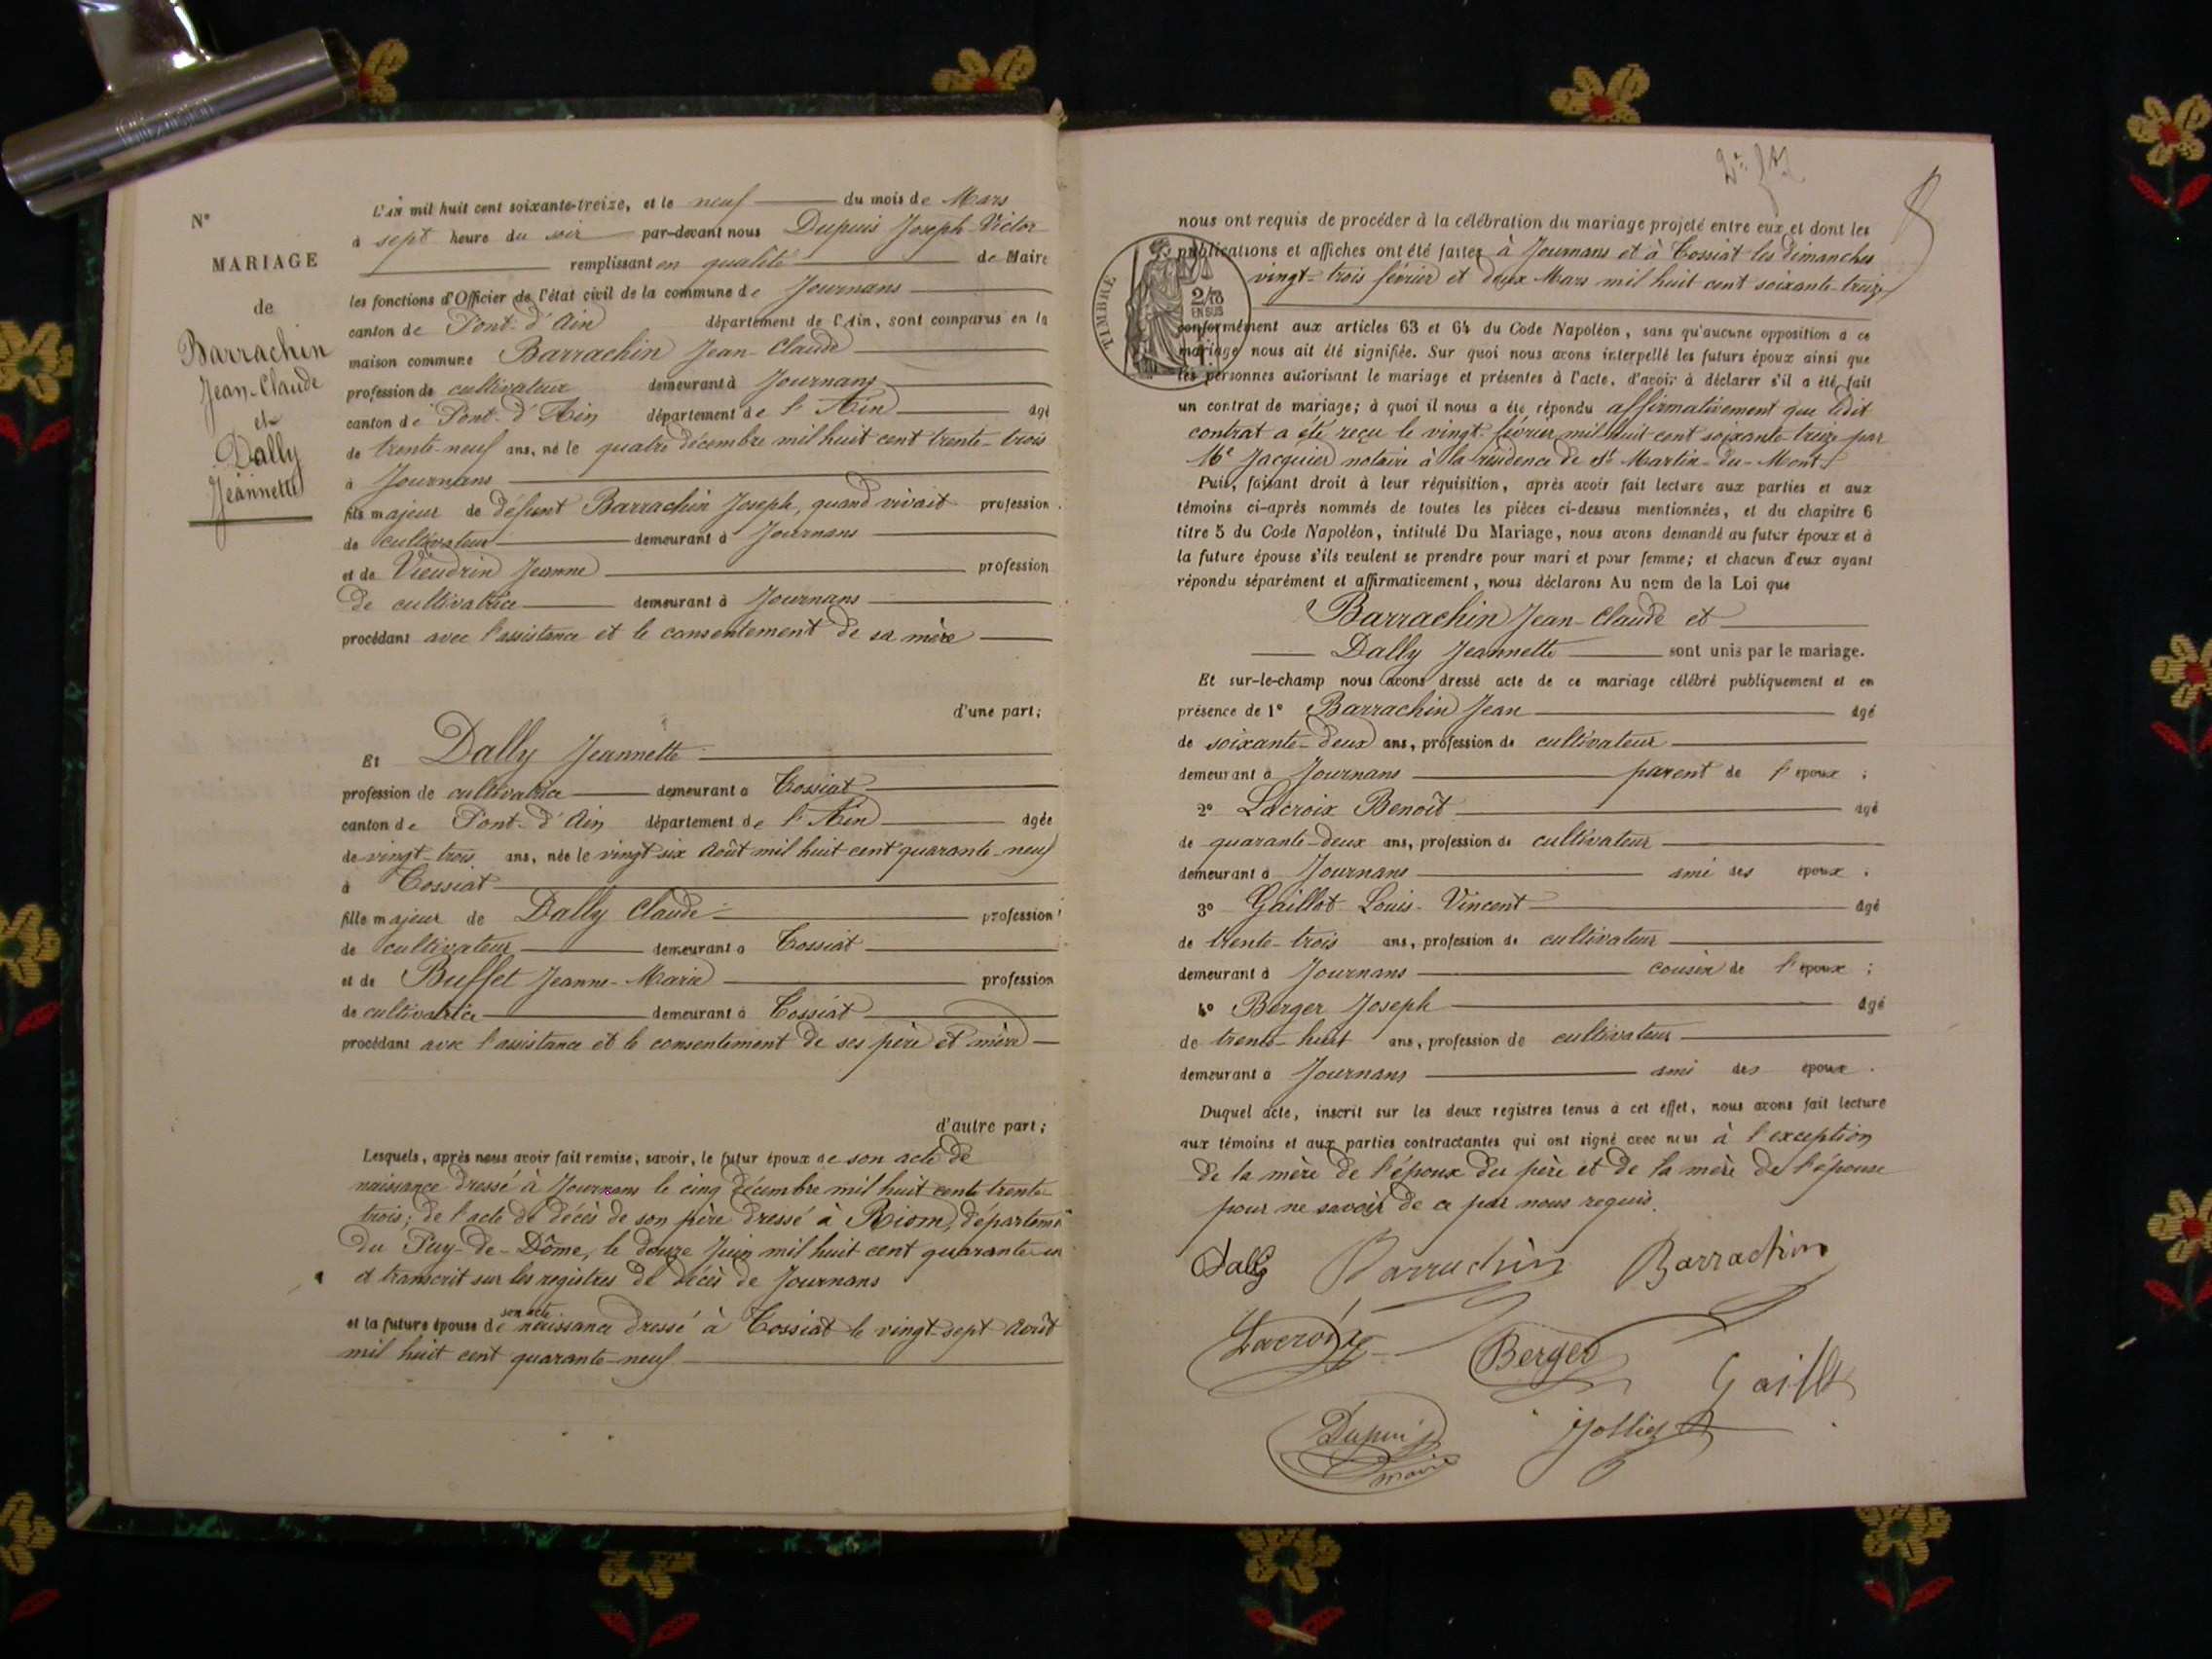 N°
MARIAGE
de
Barrachin
Jean-Claude
et
Dally
Jeannette
L'an mil huit cent soixante-treize, et le neuf du mois de Mars
à sept heure du soir par-devant nous Dupuis Joseph-Victor
remplissant en qualité de Maire
les fonctions d'Officier de l'état civil de la commune de Journans
canton de Pont-d'Ain département de l'Ain, sont comparus en la
maison commune Barrachin Jean-Claude
profession de cultivateur demeurant à Journans
canton de Pont-d'Ain département de l'Ain âgé
de trente-neuf ans, né le quatre décembre mil huit cent trente-trois
à Journans
fils majeur de défunt Barrachin Joseph, quand vivait profession
de cultivateur demeurant à Journans
et de Vieudrin Jeanne profession
de cultivatrice demeurant à Journans
procédant avec l'assistance et le consentement de sa mère
d'une part;
Et Dally Jeannette
profession de cultivatrice demeurant à Tossiat
canton de Pont-d'Ain département de l'Ain âgée
de vingt-trois ans, née le vingt-six Août mil huit cent quarante-neuf
à Tossiat
fille majeur de Dally Claude profession
de cultivateur demeurant à Tossiat
et de Buffet Jeanne-Marie profession
de cultivatrice demeurant à Tossiat
procédant avec l'assistance et le consentement de ses père et mère
d'autre part;
Lesquels, après nous avoir fait remise, savoir, le futur époux de son acte de
naissance dressé à Journans le cinq décembre mil huit cent trente-
trois; de l'acte de décès de son père dressé à Riom, départemt
du Puy-de-Dôme, le douze Juin mil huit cent quarante-un
et transcrit sur les registres de décès de Journans
et la future épouse de son acte naissance dressé à Tossiat le vingt-sept Août
mil huit cent quarante-neuf
nous ont requis de procéder à la célébration du mariage projeté entre eux et dont les
publications et affiches ont été faites à Journans et à Tossiat les dimanches
vingt-trois février et deux Mars mil huit cent soixante-treize
TIMBRE
2/10
EN SUS
conformément aux articles 63 et 64 du Code Napoléon, sans qu'aucune opposition à ce
mariage nous ait été signifiée. Sur quoi nous avons interpellé les futurs époux ainsi que
les personnes autorisant le mariage et présentes à l'acte, d'avoir à déclarer s'il a été fait
un contrat de mariage; à quoi il nous a été répondu affirmativement que ledit
contrat a été reçu le vingt février mil huit cent soixante-treize par
Me Jacquier notaire à la résidence de St Martin-du-Mont
Puis, faisant droit à leur réquisition, après avoir fait lecture aux parties et aux
témoins ci-après nommés de toutes les pièces ci-dessus mentionnées, et du chapitre 6
titre 5 du Code Napoléon, intitulé Du Mariage, nous avons demandé au futur époux et à
la future épouse s'ils veulent se prendre pour mari et pour femme; et chacun d'eux ayant
répondu séparément et affirmativement, nous déclarons Au nom de la Loi que
Barrachin Jean-Claude et
Dally Jeannette sont unis par le mariage.
Et sur-le-champ nous avons dressé acte de ce mariage célébré publiquement et en
présence de 1° Barrachin Jean âgé
de soixante-deux ans, profession de cultivateur
demeurant à Journans parent de l'époux;
2° Lacroix Benoît âgé
de quarante-deux ans, profession de cultivateur
demeurant à Journans ami des époux;
3° Gaillot Louis-Vincent âgé
de trente-trois ans, profession de cultivateur
demeurant à Journans cousin de l'époux;
4° Berger Joseph âgé
de trente-huit ans, profession de cultivateur
demeurant à Journans ami des époux.
Duquel acte, inscrit sur les deux registres tenus à cet effet, nous avons fait lecture
aux témoins et aux parties contractantes qui ont signé avec nous à l'exception
de la mère de l'époux du père et de la mère de l'épouse
pour ne savoir de ce par nous requis.
Dally Barrachin Barrachin
Lacroix Berger Gaillot
Dupuis
maire
Jolliet